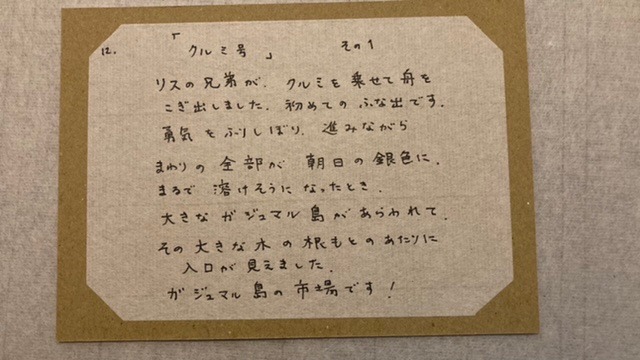 12.「クルミ号」 その1
リスの兄弟が、クルミを乗せて舟を
こぎ出しました。初めてのふな出です。
勇気をふりしぼり、進みながら
まわりの全部が朝日の銀色に、
まるで溶けそうになったとき、
大きなガジュマル島があらわれて、
その大きな木の根もとのあたりに
入口が見えました。
ガジュマル島の市場です!